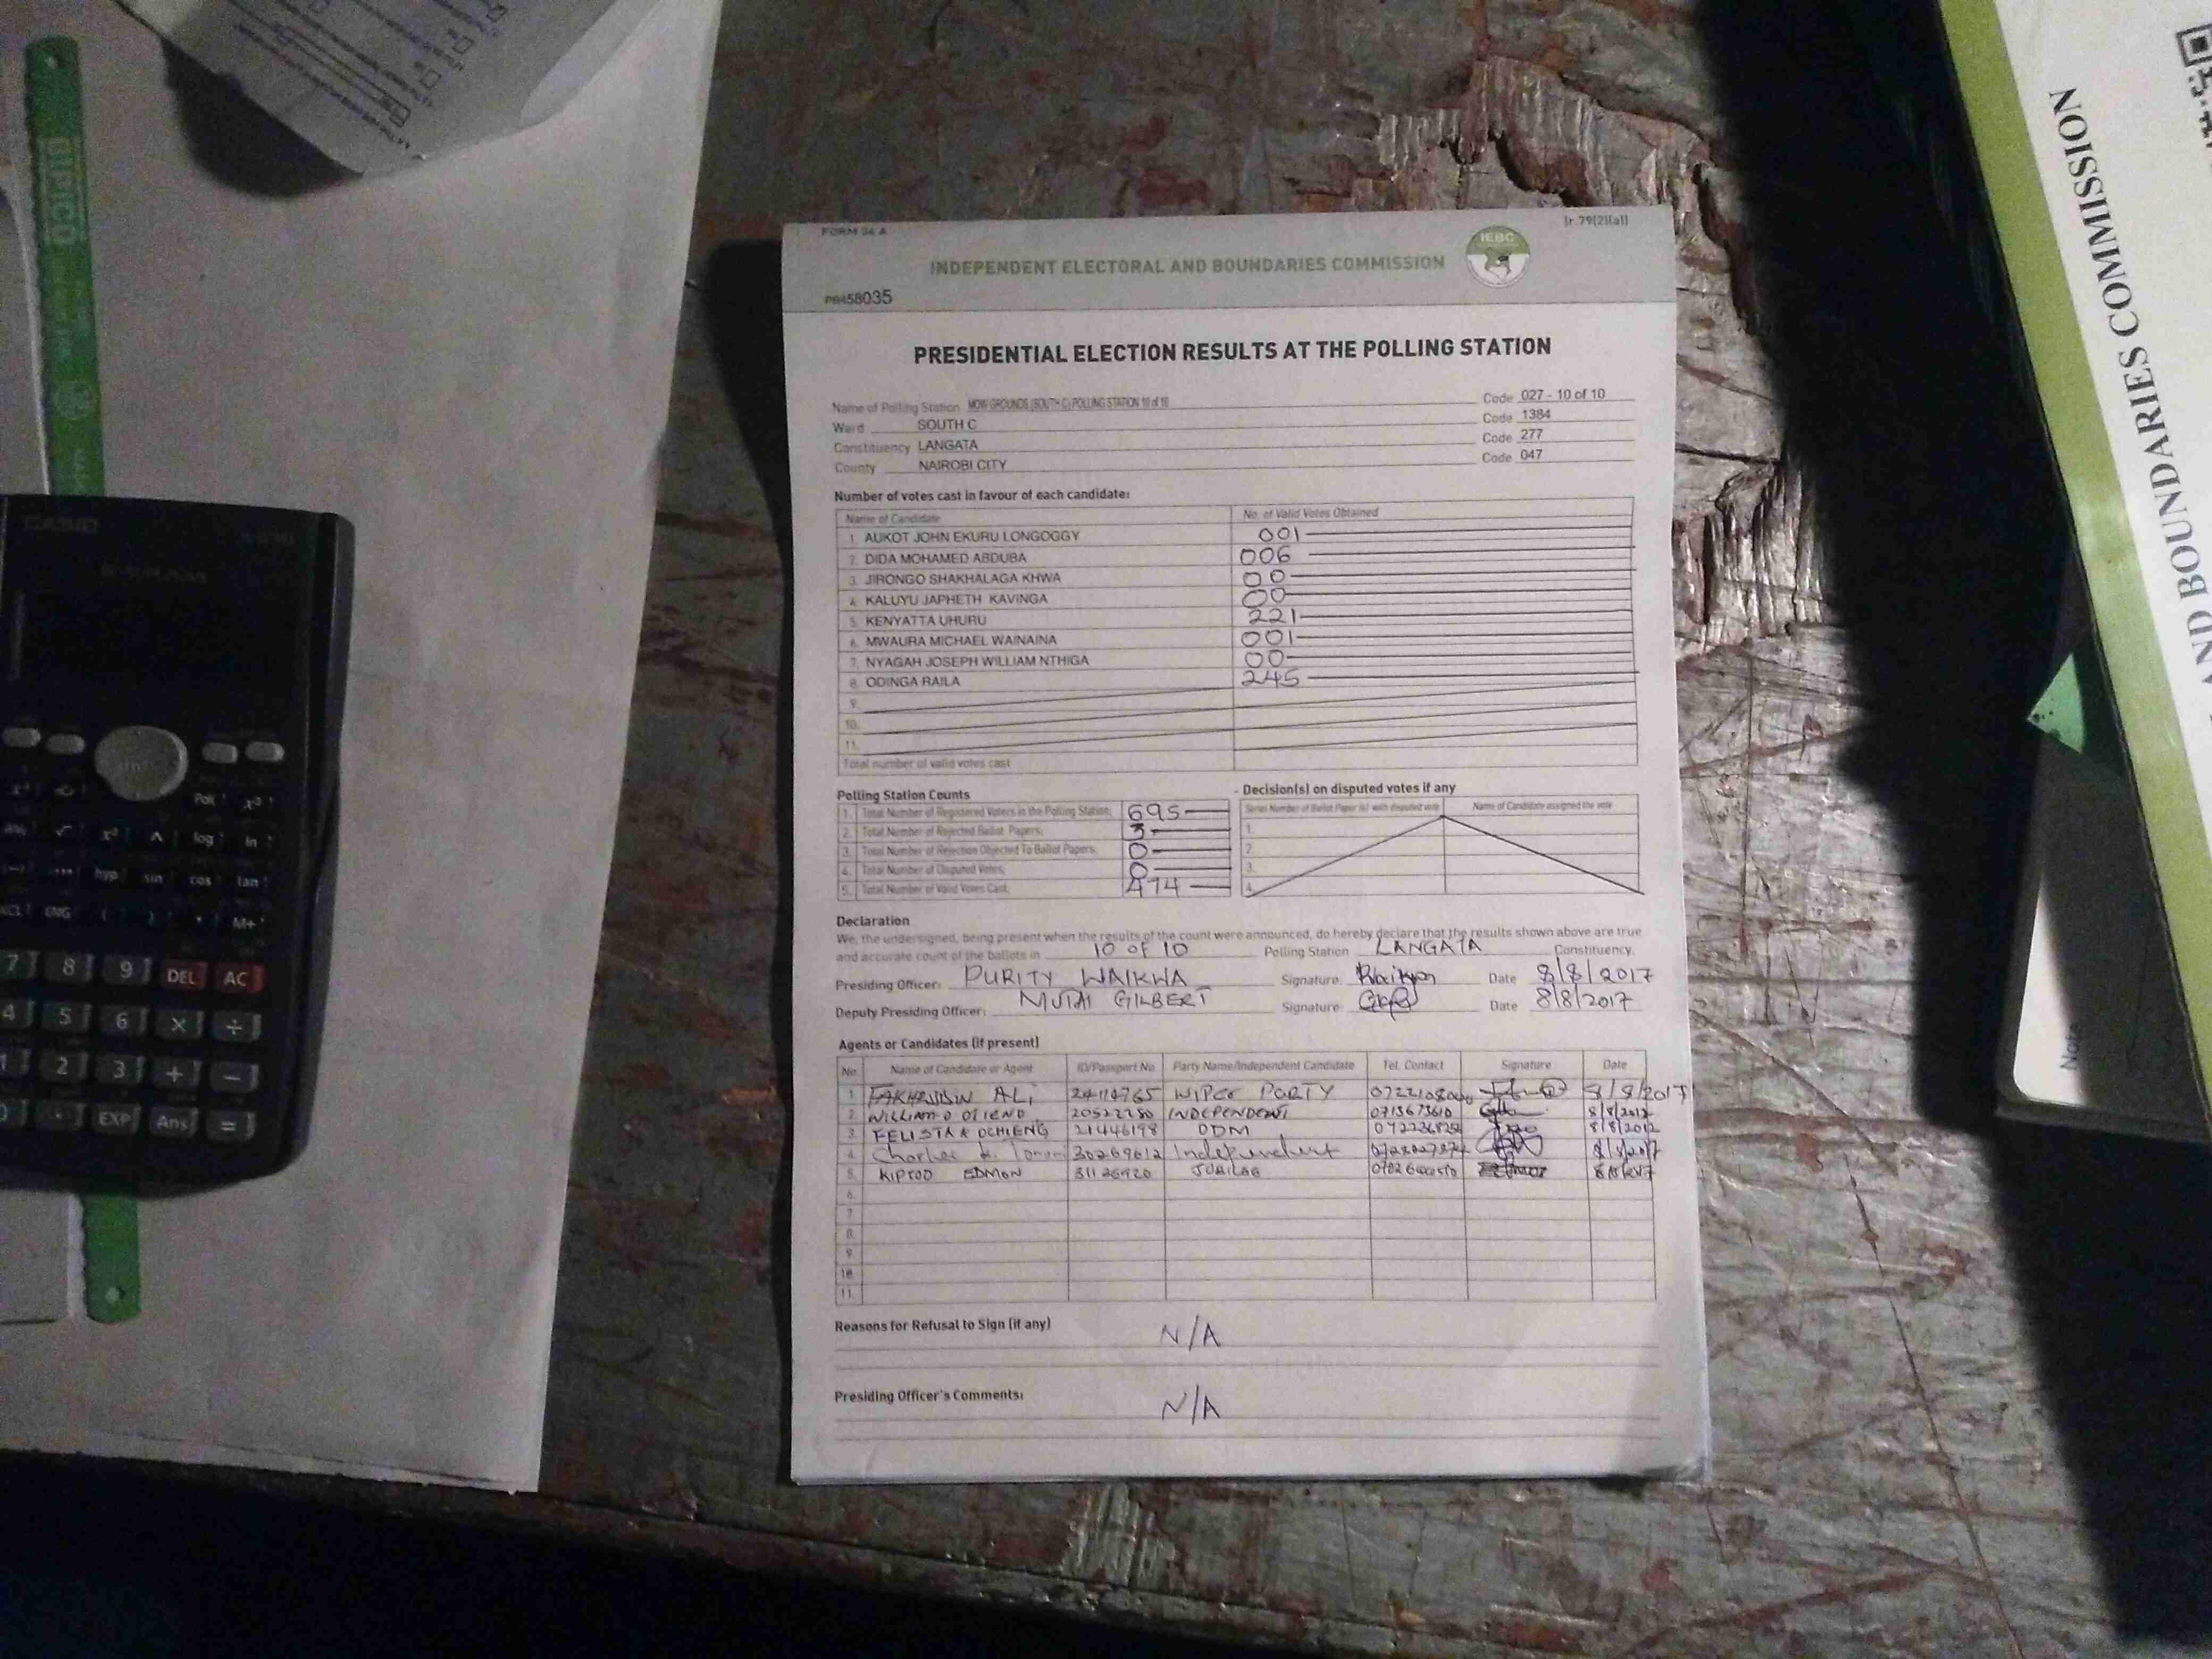 FORM 34 A
(r.79(2)(a))
INDEPENDENT ELECTORAL AND BOUNDARIES COMMISSION
IEBC
58035
PRESIDENTIAL ELECTION RESULTS AT THE POLLING STATION
Name of Polling Station MOW GROUNDS (SOUTH C) POLLING STATION 10 of 10 Code 027 - 10 of 10
Ward SOUTH C Code 1384
Constituency LANGATA Code 277
County NAIROBI CITY Code 047
Number of votes cast in favour of each candidate:
Name of Candidate No. of Valid Votes Obtained
1. AUKOT JOHN EKURU LONGOGGY 001
2. DIDA MOHAMED ABDUBA 006
3. JIRONGO SHAKHALAGA KHWA 00
4. KALUYU JAPHETH KAVINGA 00
5. KENYATTA UHURU 221
6. MWAURA MICHAEL WAINAINA 001
7. NYAGAH JOSEPH WILLIAM NTHIGA 00
8. ODINGA RAILA 245
9.
10.
11.
Total number of valid votes cast
Polling Station Counts
1. Total Number of Registered Voters in the Polling Station; 695
2. Total Number of Rejected Ballot Papers; 3
3. Total Number of Rejection Objected To Ballot Papers; 0
4. Total Number of Disputed Votes; 0
5. Total Number of Valid Votes Cast; 474
Decision(s) on disputed votes if any
Serial Number of Ballot Paper (s) with disputed vote Name of Candidate assigned the vote
1.
2.
3.
4.
Declaration
We, the undersigned, being present when the results of the count were announced, do hereby declare that the results shown above are true
and accurate count of the ballots in 10 OF 10 Polling Station LANGATA Constituency.
Presiding Officer: PURITY WAIKWA Signature: Date 8/8/2017
Deputy Presiding Officer: MUTAI GILBERT Signature Date 8/8/2017
Agents or Candidates (if present)
No Name of Candidate or Agent ID/Passport No. Party Name/Independent Candidate Tel. Contact Signature Date
1. ALI WIPER PARTY 8/8/2017
2. WILLIAM O OTIENO INDEPENDENT 8/8/2017
3. OCHIENG 21446198 ODM
4. Charles 30269612 Independent 8/8/2017
5. EDMON JUBILEE
6.
7.
8.
9.
10.
11.
Reasons for Refusal to Sign (if any) N/A
Presiding Officer's Comments: N/A
CASIO
Pol x³
√ x² ^ log ln
hyp sin cos tan
ENG ( ) , M+
7 8 9 DEL AC
4 5 6 × ÷
1 2 3 + −
0 · EXP Ans =
COMMISSION
AND BOUNDARIES COMMISSION